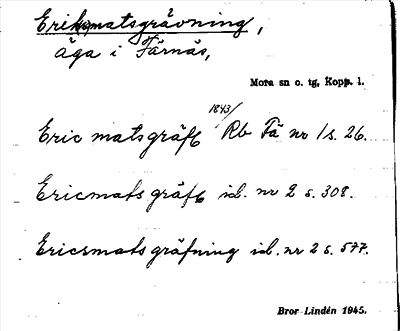 Eriksmatsgrävning,
äga i Färnäs,
Mora sn o. tg, Kopp. l.
Eric matsgräfs 1843/ Rb Fä nr 1 s. 26.
Ericmats gräfs id. nr 2 s. 308.
Ericsmats gräfning id. nr 2 s. 577.
Bror Lindén 1945.